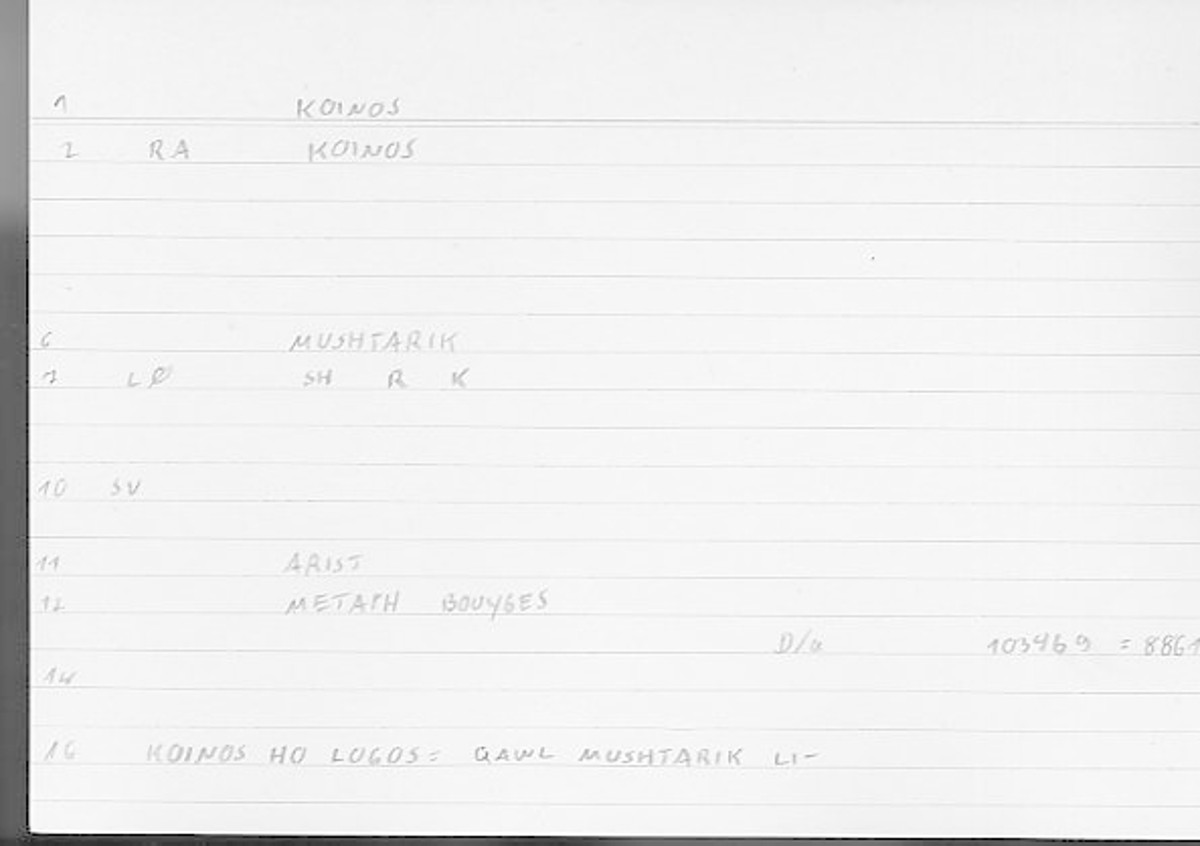 1 KOINOS
2 RA KOINOS
6 MUSHTARIK
7 LØ SH R K
10 SV
11 ARIST
12 METAPH BOUYGES
D/a 103469 = 8861
14
16 KOINOS HO LOGOS = QAWL MUSHTARIK LI-